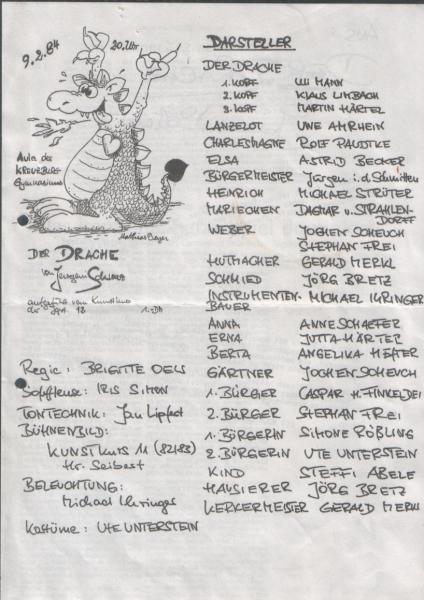 9.2.84 20.Uhr
Aula des
KREUZBURG-
Gymnasiums
Matthias Beyer
DER DRACHE
von Jewgenij Schwarz
aufgeführt vom
der Jgst. 12 1.-DM
Regie: BRIGITTE OELS
Souffleuse: IRIS SIMON
TONTECHNIK: Jan Lipfert
BÜHNENBILD:
KUNSTKURS 11 (82/83)
Hr. Seibert
BELEUCHTUNG:
Michael Ihringer
Kostüme: UTE UNTERSTEIN
DARSTELLER
DER DRACHE
1. KOPF ULI MANN
2. KOPF KLAUS LIMBACH
3. KOPF MARTIN HÄRTEL
LANZELOT UWE AMRHEIN
CHARLESMAGNE ROLF PAUDTKE
ELSA ASTRID BECKER
BÜRGERMEISTER Jürgen i.d. Schmitten
HEINRICH MICHAEL STRÜTER
MARIECHEN DAGMAR v. STRAHLEN-
DORFF
WEBER JOCHEN SCHEUCH
STEPHAN FREI
HUTMACHER GERALD MERKL
SCHMIED JÖRG BRETZ
INSTRUMENTEN- MICHAEL IHRINGER
BAUER
ANNA ANNE SCHAEFER
ERNA JUTTA HÄRTER
BERTA ANGELIKA
GÄRTNER JOCHEN SCHEUCH
1. BÜRGER CASPAR H. FINKELDEI
2. BÜRGER STEPHAN FREI
1. BÜRGERIN SIMONE RÖßLING
2. BÜRGERIN UTE UNTERSTEIN
KIND STEFFI ABELE
HAUSIERER JÖRG BRETZ
KERKERMEISTER GERALD MERKL